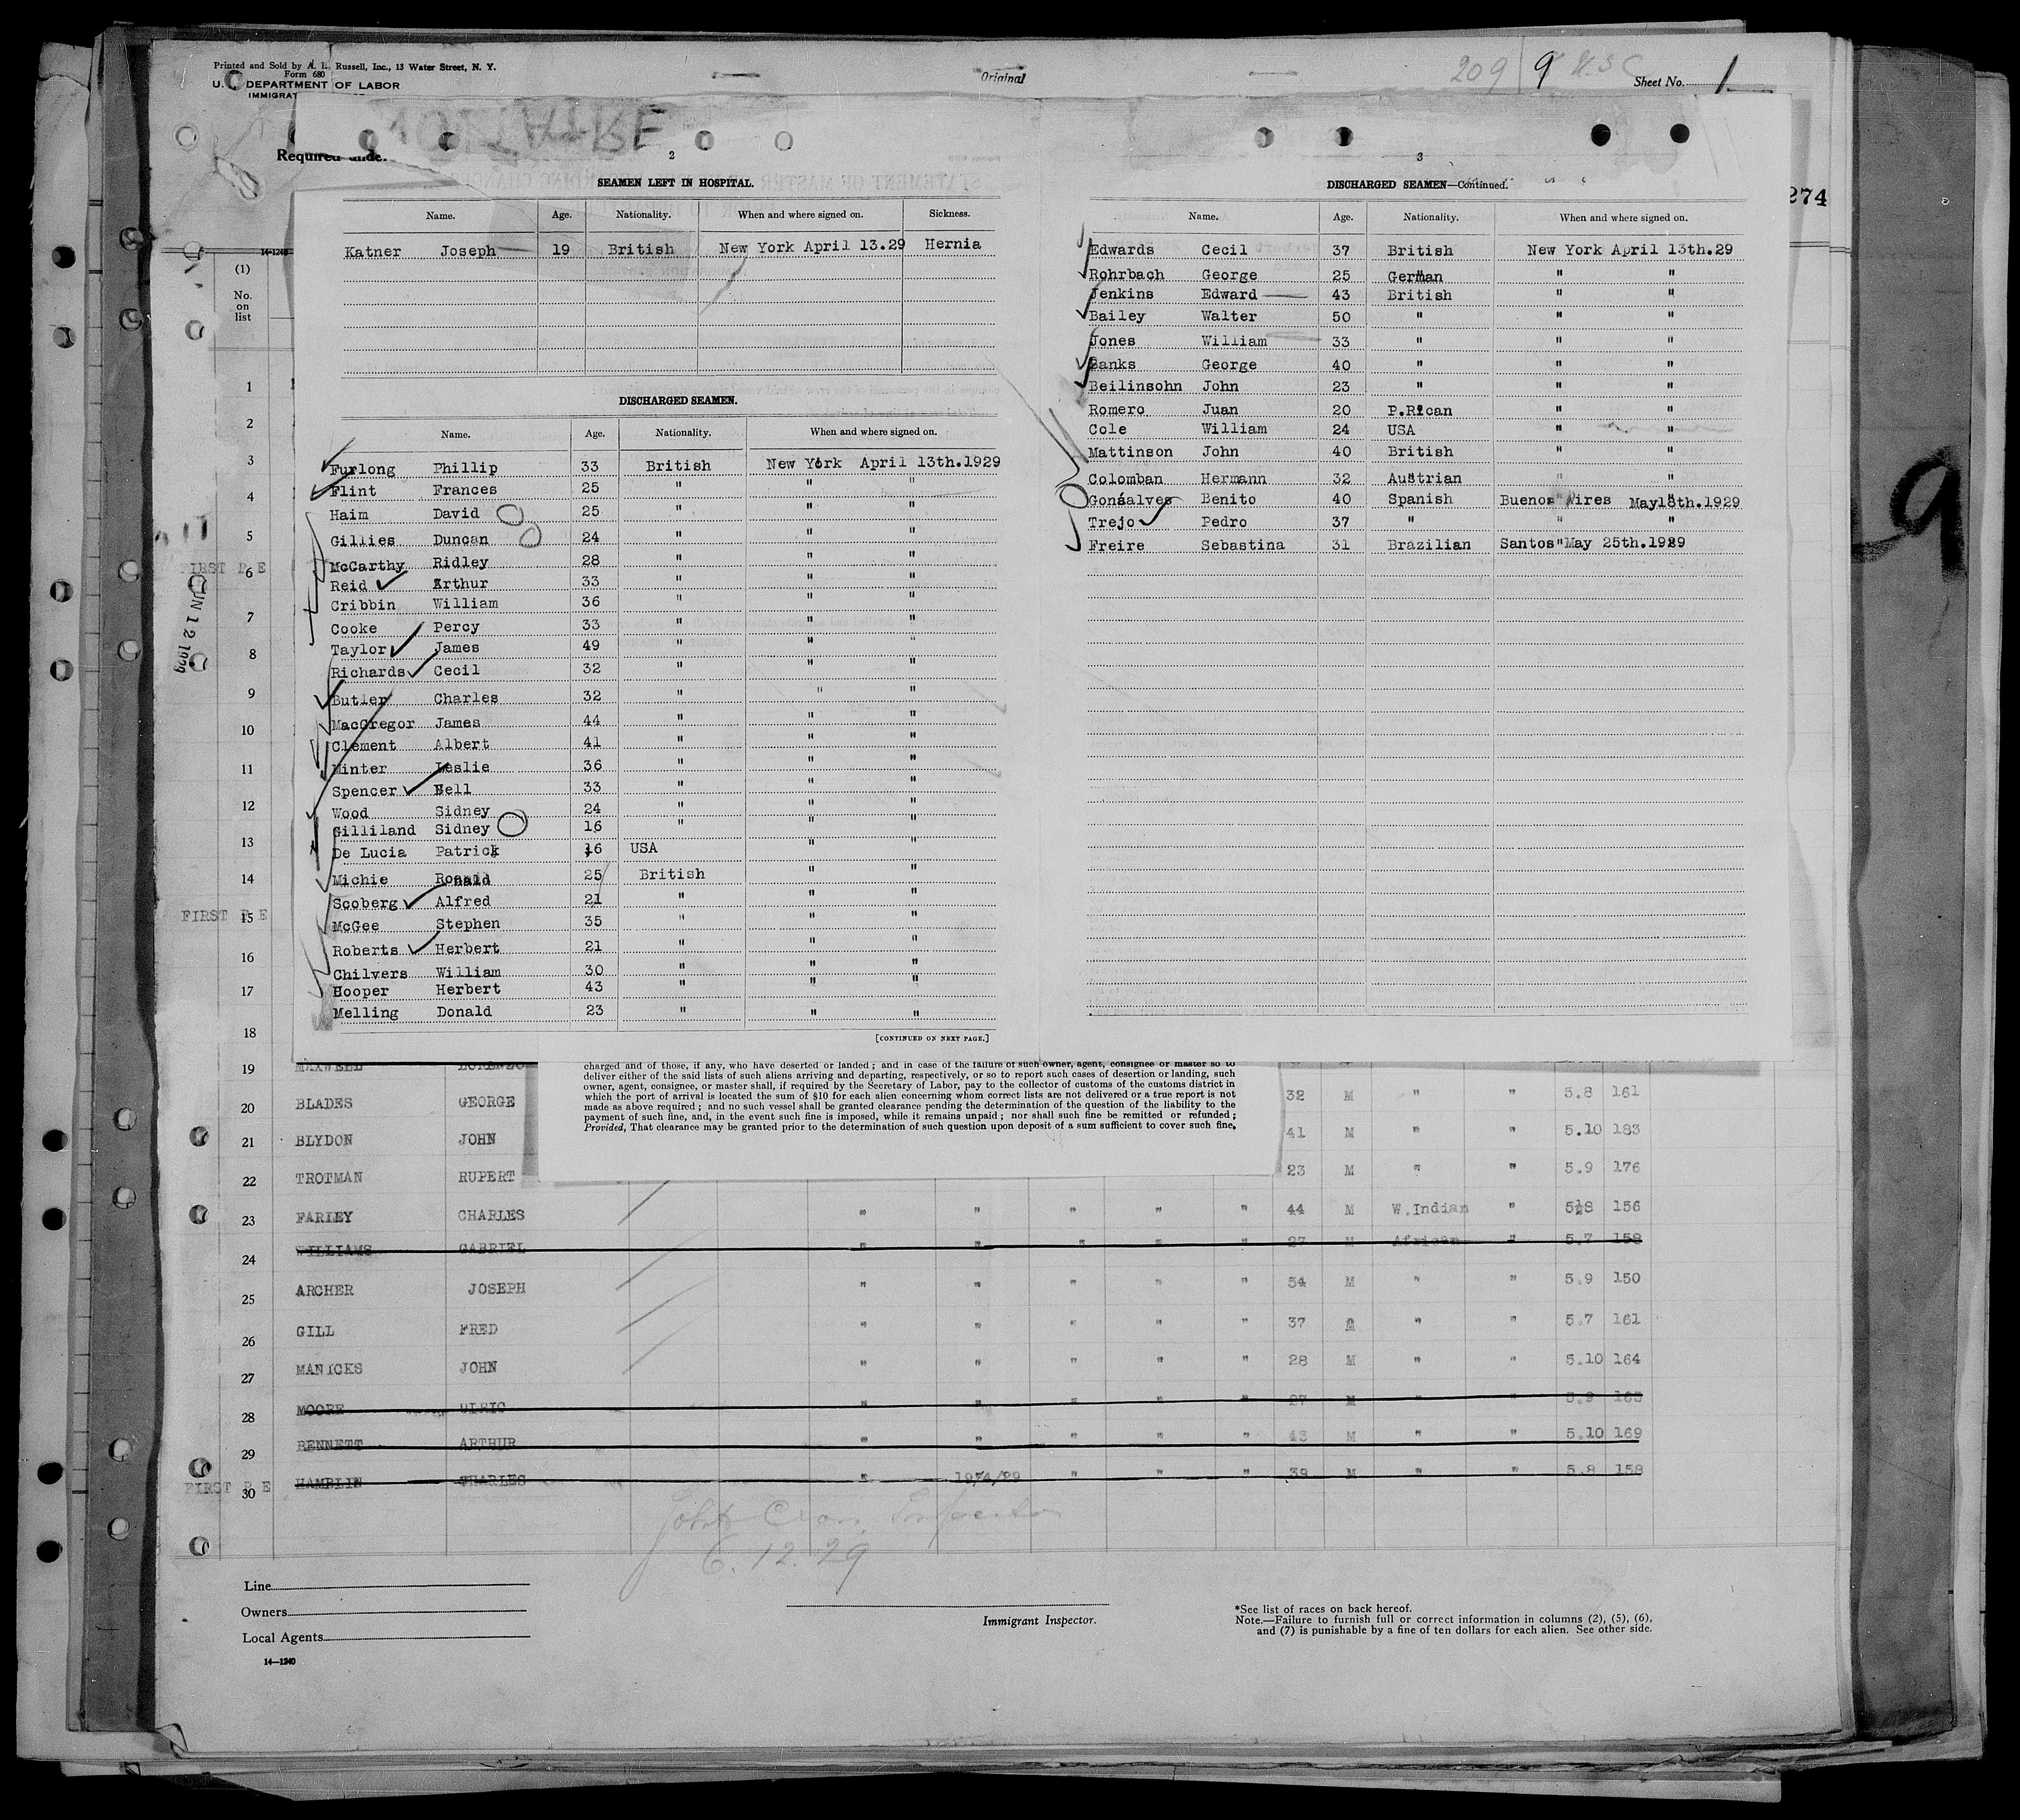 Printed and Sold by A. L. Russell, Inc., 13 Water Street, N. Y.
Form 680
U. S. DEPARTMENT OF LABOR
IMMIGRAT
Original
209 9
Sheet No. 1
Required unde
274
2
SEAMEN LEFT IN HOSPITAL.
Name. Age. Nationality. When and where signed on. Sickness.
Katner Joseph 19 British New York April 13.29 Hernia
DISCHARGED SEAMEN.
Name. Age. Nationality. When and where signed on.
Furlong Phillip 33 British New York April 13th.1929
Flint Frances 25 " " "
Haim David 25 " " "
Gillies Duncan 24 " " "
McCarthy Ridley 28 " " "
Reid Arthur 33 " " "
Cribbin William 36 " " "
Cooke Percy 33 " " "
Taylor James 49 " " "
Richards Cecil 32 " " "
Butler Charles 32 " " "
MacGregor James 44 " " "
Clement Albert 41 " " "
Minter Leslie 36 " " "
Spencer Nell 33 " " "
Wood Sidney 24 " " "
Gilliland Sidney 16 " " "
De Lucia Patrick 16 USA " "
Michie Ronald 25 British " "
Scoberg Alfred 21 " " "
McGee Stephen 35 " " "
Roberts Herbert 21 " " "
Chilvers William 30 " " "
Hooper Herbert 43 " " "
Melling Donald 23 " " "
[CONTINUED ON NEXT PAGE.]
3
DISCHARGED SEAMEN—Continued.
Name. Age. Nationality. When and where signed on.
Edwards Cecil 37 British New York April 13th.29
Rohrbach George 25 German " "
Jenkins Edward 43 British " "
Bailey Walter 50 " " "
Jones William 33 " " "
Banks George 40 " " "
Beilinsohn John 23 " " "
Romero Juan 20 P.Rican " "
Cole William 24 USA " "
Mattinson John 40 British " "
Colomban Hermann 32 Austrian " "
Gonsalves Benito 40 Spanish Buenos Aires May18th.1929
Trejo Pedro 37 " " "
Freire Sebastina 31 Brazilian Santos May 25th.1929
14-1240
(1)
No.
on
list
1
2
3
4
5
6
7
8
9
10
11
12
13
14
15
16
17
18
FIRST P E
JUN 12 1929
FIRST P E
charged and of those, if any, who have deserted or landed; and in case of the failure of such owner, agent, consignee or master so to
deliver either of the said lists of such aliens arriving and departing, respectively, or so to report such cases of desertion or landing, such
owner, agent, consignee, or master shall, if required by the Secretary of Labor, pay to the collector of customs of the customs district in
which the port of arrival is located the sum of $10 for each alien concerning whom correct lists are not delivered or a true report is not
made as above required; and no such vessel shall be granted clearance pending the determination of the question of the liability to the
payment of such fine, and, in the event such fine is imposed, while it remains unpaid; nor shall such fine be remitted or refunded;
Provided, That clearance may be granted prior to the determination of such question upon deposit of a sum sufficient to cover such fine.
19 MAXWELL LORENZO
20 BLADES GEORGE 32 M " " 5.8 161
21 BLYDON JOHN 41 M " " 5.10 183
22 TROTMAN RUPERT 23 M " " 5.9 176
23 FARLEY CHARLES " " " " " 44 M W.Indian " 5½8 156
24 WILLIAMS GABRIEL " " " " " 27 M African " 5.7 158
25 ARCHER JOSEPH " " " " " 54 M " " 5.9 150
26 GILL FRED " " " " " 37 M " " 5.7 161
27 MANICKS JOHN " " " " " 28 M " " 5.10 164
28 MOORE ULRIC " " " " " 27 M " " 5.9 165
29 BENNETT ARTHUR " " " " " 43 M " " 5.10 169
30 HAMBLIN CHARLES " 19/4/29 " " " 39 M " " 5.8 158
FIRST P E
6.12.29
Line
Owners
Local Agents
14—1240
Immigrant Inspector.
*See list of races on back hereof.
Note.—Failure to furnish full or correct information in columns (2), (5), (6),
and (7) is punishable by a fine of ten dollars for each alien. See other side.
9